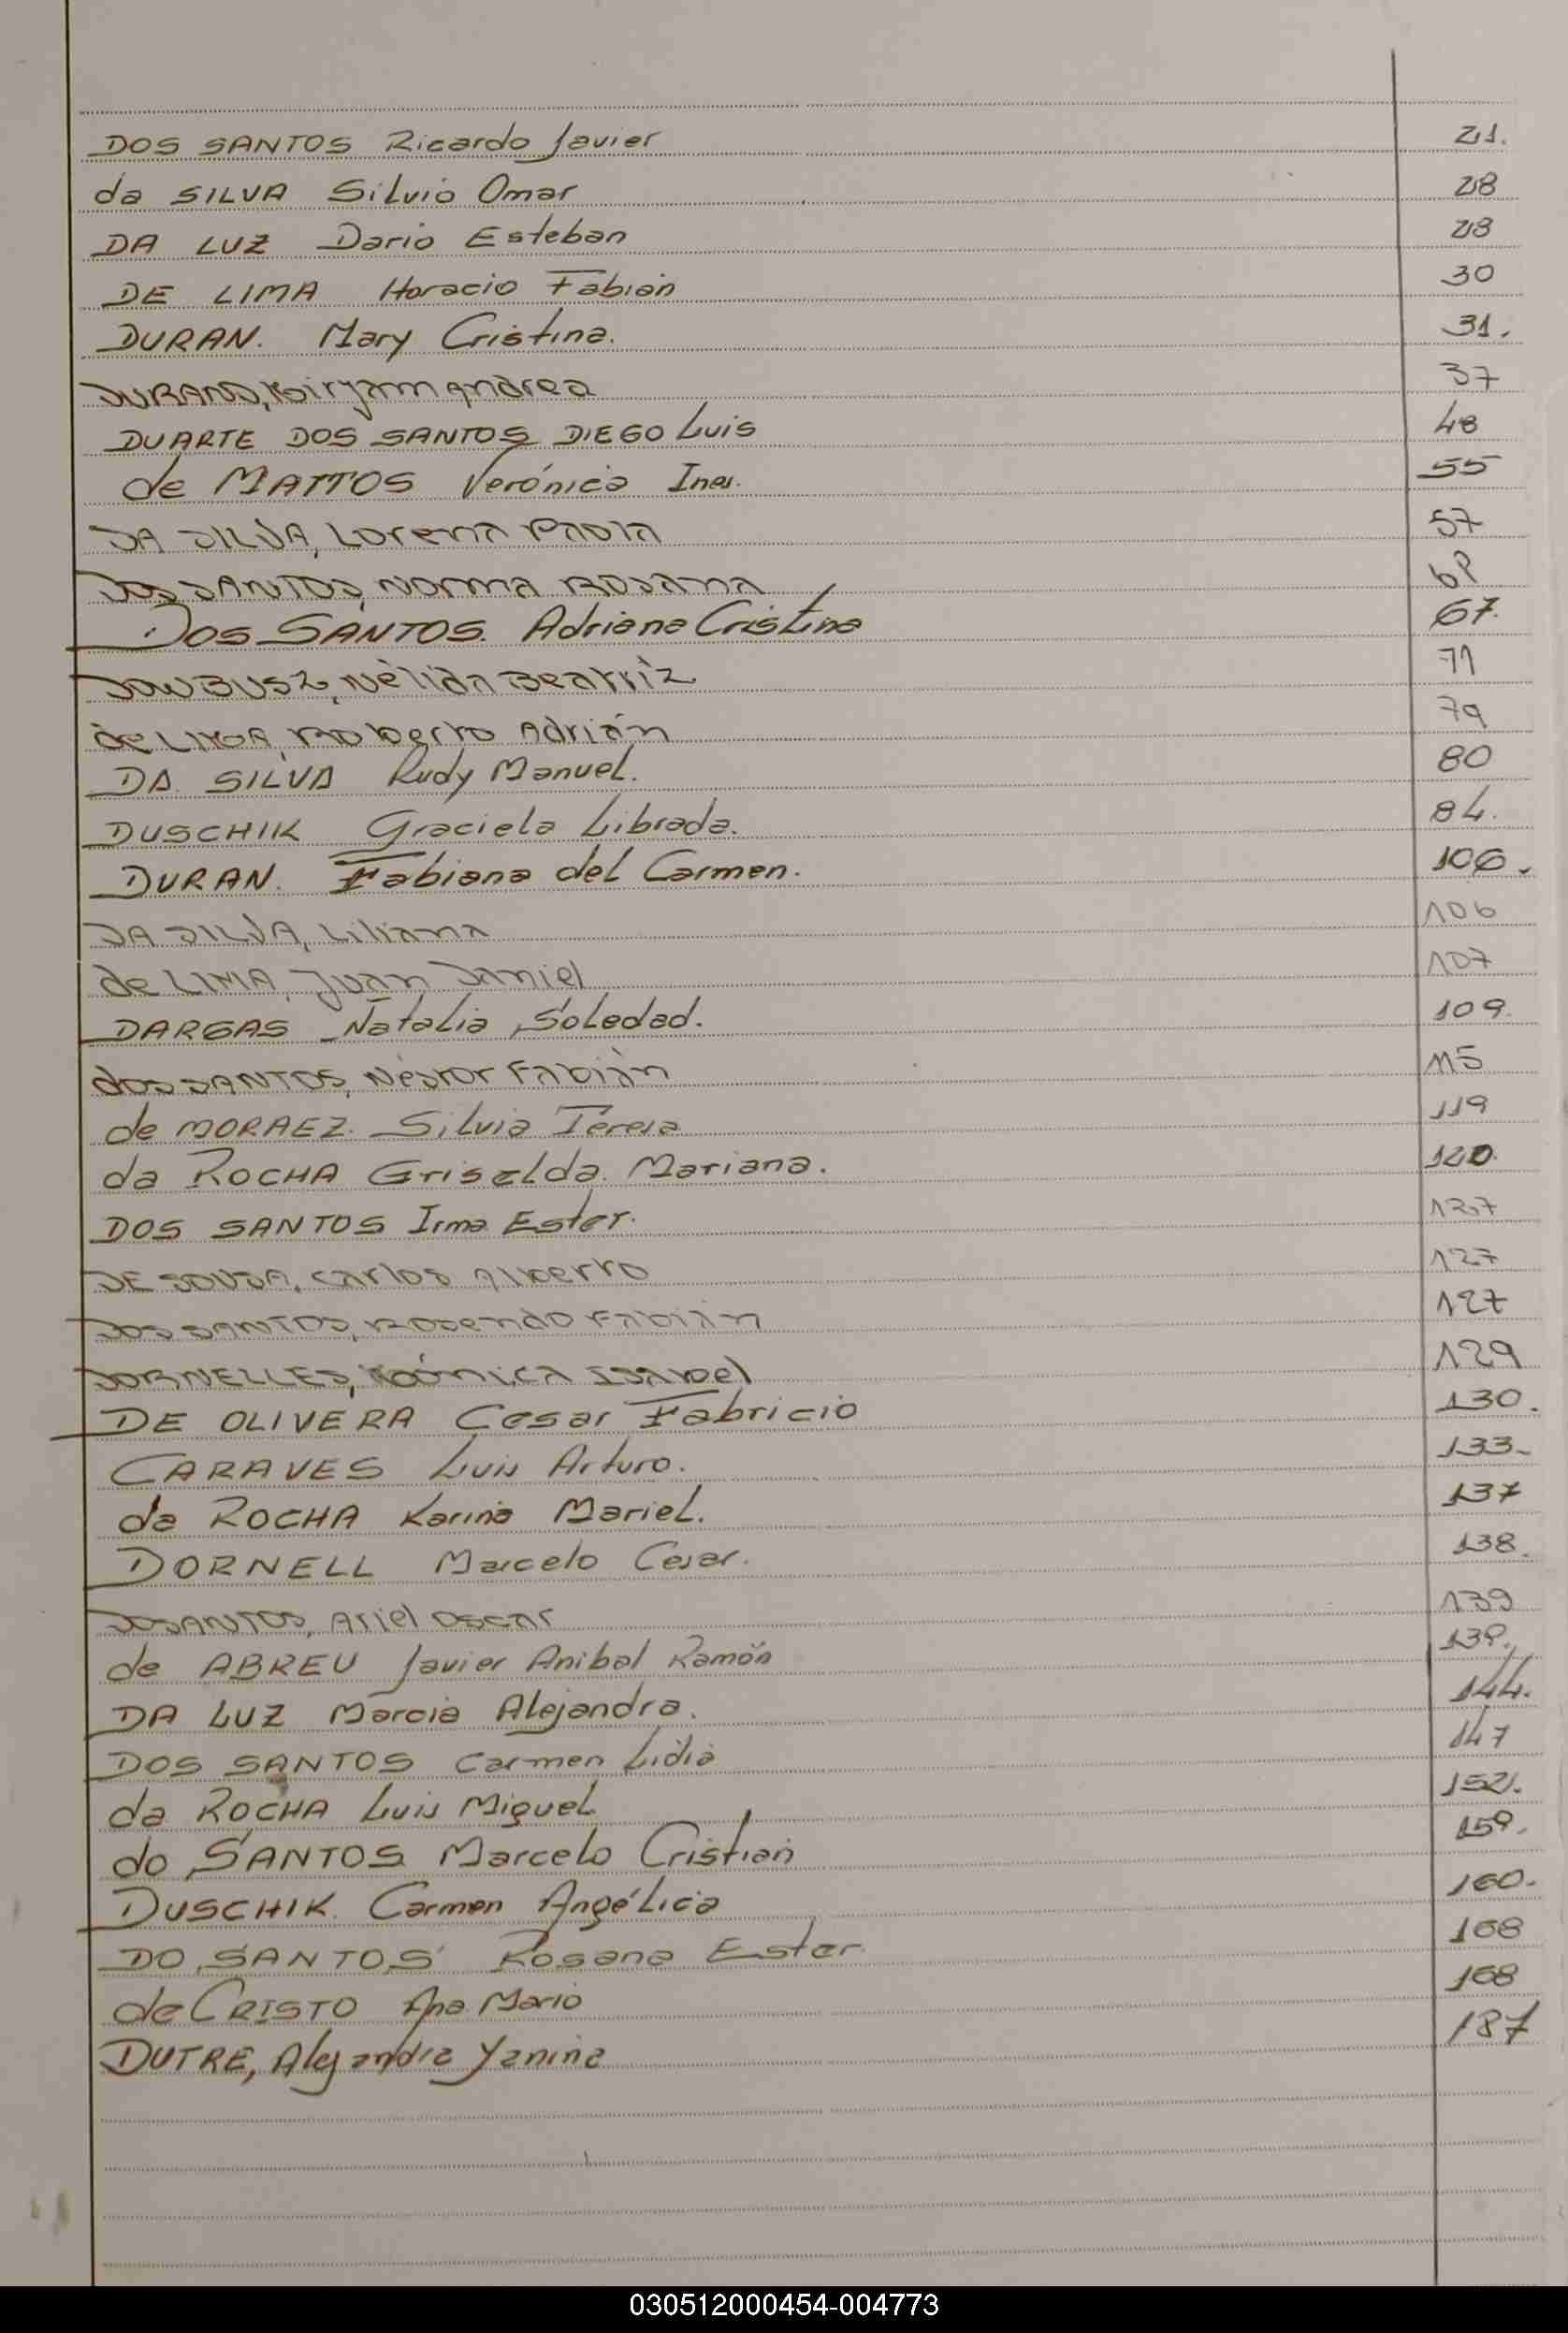 DOS SANTOS Ricardo Javier 21.
da SILVA Silvio Omar 28
DA LUZ Dario Esteban 28
DE LIMA Horacio Fabián 30
DURAN. Mary Cristina. 31.
DURAND, Miryam Andrea 37
DUARTE DOS SANTOS DIEGO Luis 48
de MATTOS Verónica Ines. 55
DA SILVA, Lorena Paola 57
DOS SANTOS, Norma Rosana
DOS SANTOS. Adriana Cristina 67.
DOWBUSZ, Nélida Beatriz 71
de LIMA, Roberto Adrián 79
DA SILVA Rudy Manuel. 80
DUSCHIK Graciela Librada. 84.
DURAN. Fabiana del Carmen. 106.
DA SILVA, Liliana 106
de LIMA, Juan Daniel 107
DARGAS Natalia Soledad. 109.
dos SANTOS, Néstor Fabián 115
de MORAEZ. Silvia Teresa 119
da ROCHA Griselda. Mariana. 120.
DOS SANTOS Irma Ester. 127
DE SOUSA, Carlos Alberto 127
DOS SANTOS, Rosendo Fabián 127
DORNELLES, Mónica Isabel 129
DE OLIVERA Cesar Fabricio 130.
CARAVES Luis Arturo. 133.
da ROCHA Karina Mariel. 137
DORNELL Marcelo Cesar. 138.
DOSANTOS, Ariel Oscar 139
de ABREU Javier Anibal Ramón 139.
DA LUZ Marcia Alejandra. 144.
DOS SANTOS Carmen Lidia 147
da ROCHA Luis Miguel 152.
do SANTOS Marcelo Cristian 159.
DUSCHIK. Carmen Angélica 160.
DO SANTOS Rosana Ester. 168
de CRISTO Ana Maria 168
DUTRE, Alejandra Yanina 187
030512000454-004773